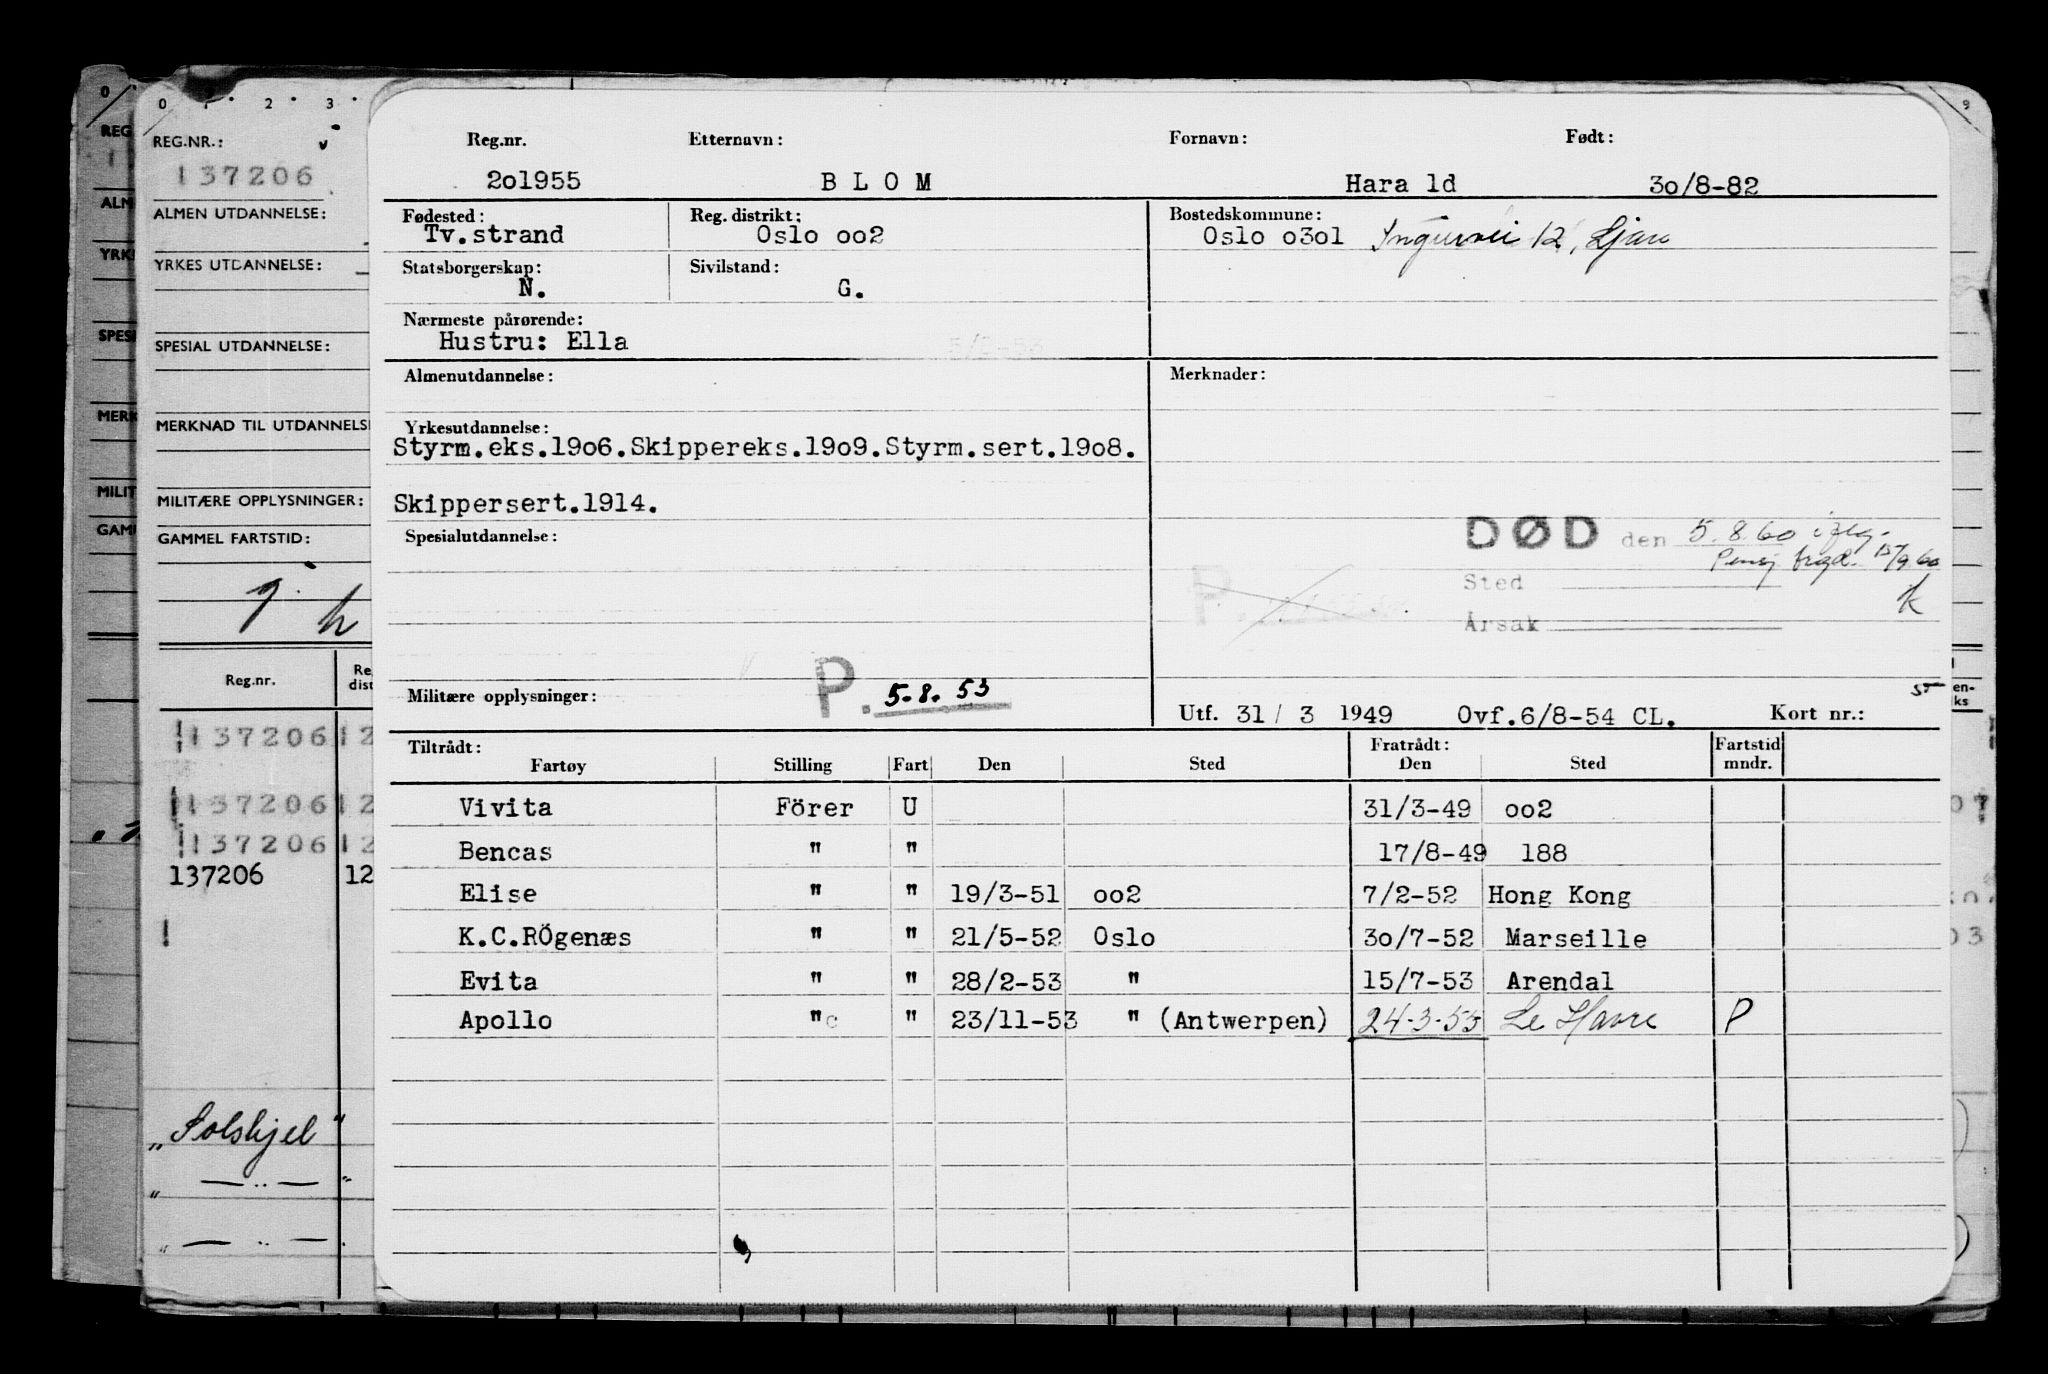 0 1 2 3 9
REG.NR.:
137206
ALMEN UTDANNELSE:
YRKES UTDANNELSE:
SPESIAL UTDANNELSE:
MERKNAD TIL UTDANNELSE
MILITÆRE OPPLYSNINGER:
GAMMEL FARTSTID:
Reg.nr.
137206 12
137206 12
137206 12
137206 12
"Solskjel"
" — .. — "
" — .. — .
Reg.nr. Etternavn: Fornavn: Født:
2o1955 B L O M Hara ld 3o/8-82
Fødested: Reg. distrikt: Bostedskommune:
Tv.strand Oslo oo2 Oslo o3o1 12, Ljan
Statsborgerskap: Sivilstand:
N. G.
Nærmeste pårørende:
Hustru: Ella
Almenutdannelse: Merknader:
Yrkesutdannelse:
Styrm.eks.19o6.Skippereks.19o9.Styrm.sert.19o8.
Skippersert.1914.
Spesialutdannelse:
DØD den 5.8.60 iflg.
Pensj trygd. 15/9 60
Sted
Årsak
K
P. 5.8.53
Militære opplysninger:
Utf. 31 / 3 1949 Ovf.6/8-54 CL. Kort nr.:
Tiltrådt: Fratrådt: Fartstid
Fartøy Stilling Fart Den Sted Den Sted mndr.
Vivita Förer U 31/3-49 oo2
Bencas " " 17/8-49 188
Elise " " 19/3-51 oo2 7/2-52 Hong Kong
K.C.RÖgenæs " " 21/5-52 Oslo 3o/7-52 Marseille
Evita " " 28/2-53 " 15/7-53 Arendal
Apollo " " 23/11-53 " (Antwerpen) 24-3-55 Le Havre P